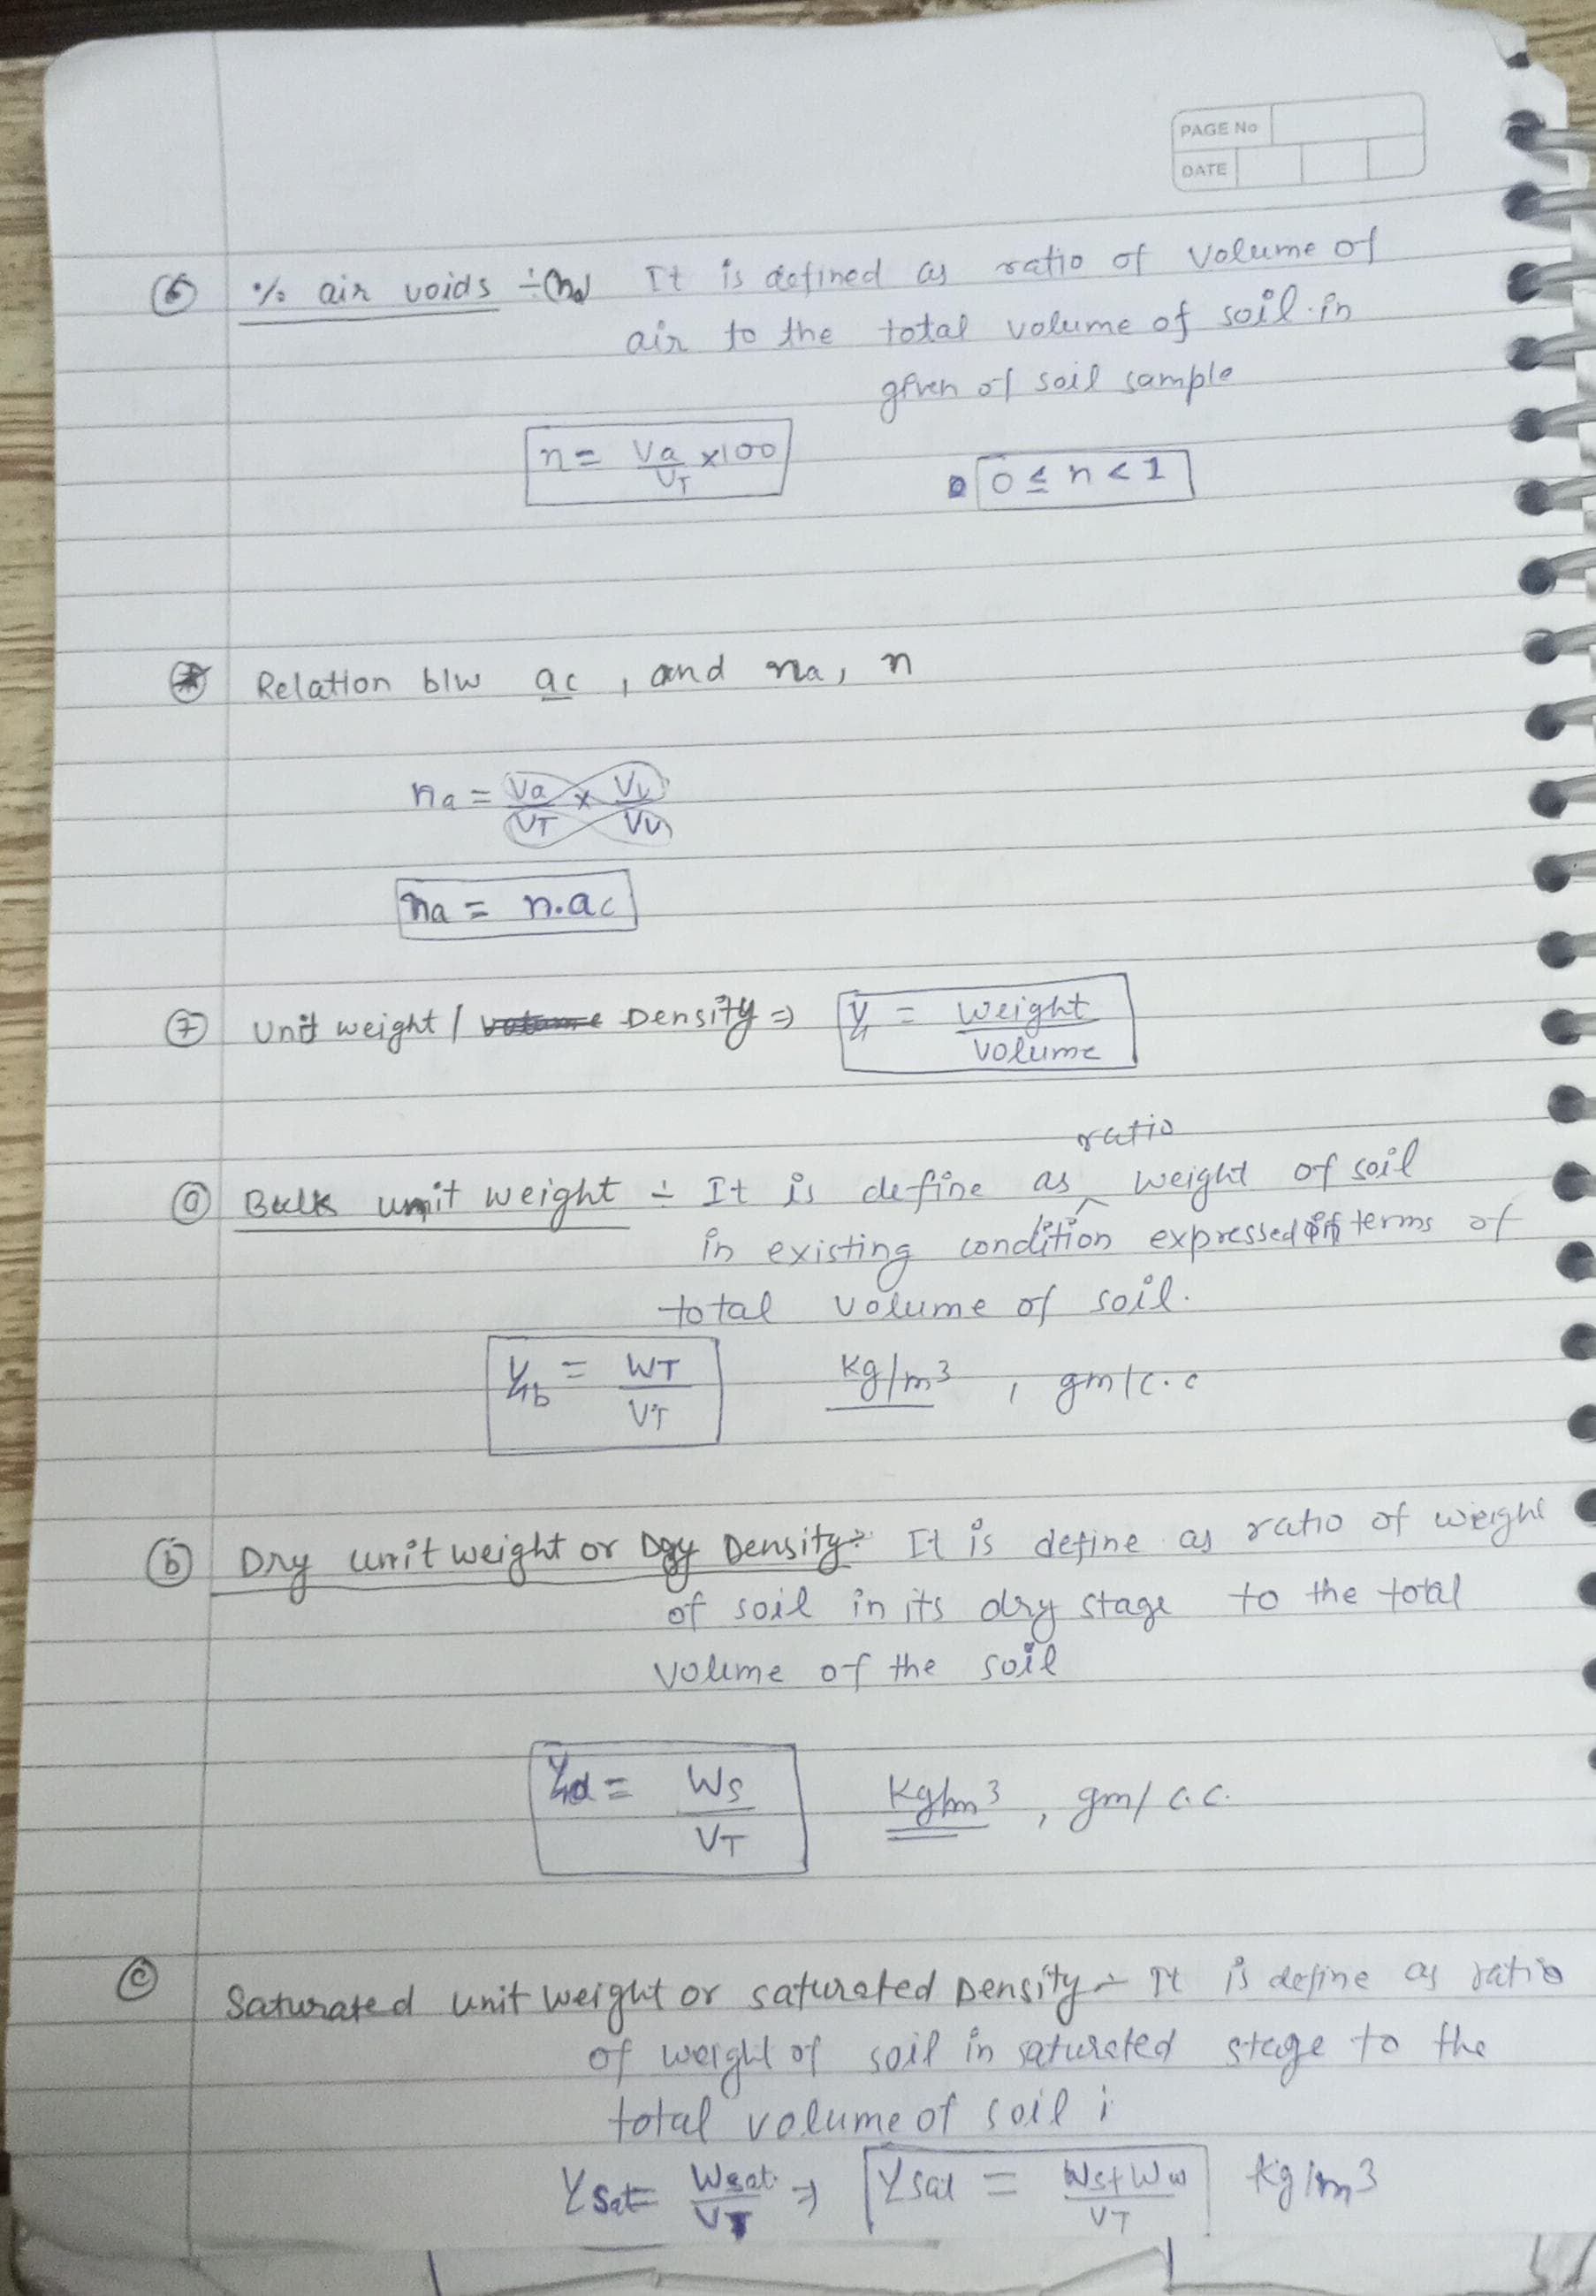 PAGE No
DATE
⑥ % air voids ÷ (na) It is defined as ratio of volume of
air to the total volume of soil in
given of soil sample
n = Va/VT ×100    0 ≤ n < 1
Relation b/w ac , and na, n
na = Va/VT × Vv/Vv
na = n.ac
⑦ Unit weight / Density ⇒ γ = weight/volume
ratio
ⓐ Bulk unit weight ÷ It is define as ^ weight of soil
in existing condition expressed in terms of
total volume of soil.
γb = WT/VT    kg/m³ , gm/c.c
ⓑ Dry unit weight or Dry Density ÷ It is define as ratio of weight
of soil in its dry stage to the total
volume of the soil
γd = Ws/VT    kg/m³ , gm/c.c.
ⓒ Saturated unit weight or saturated Density ÷ It is define as ratio
of weight of soil in saturated stage to the
total volume of soil i
γsat = Wsat./VT ⇒ γsat = Ws+Ww/VT kg/m³